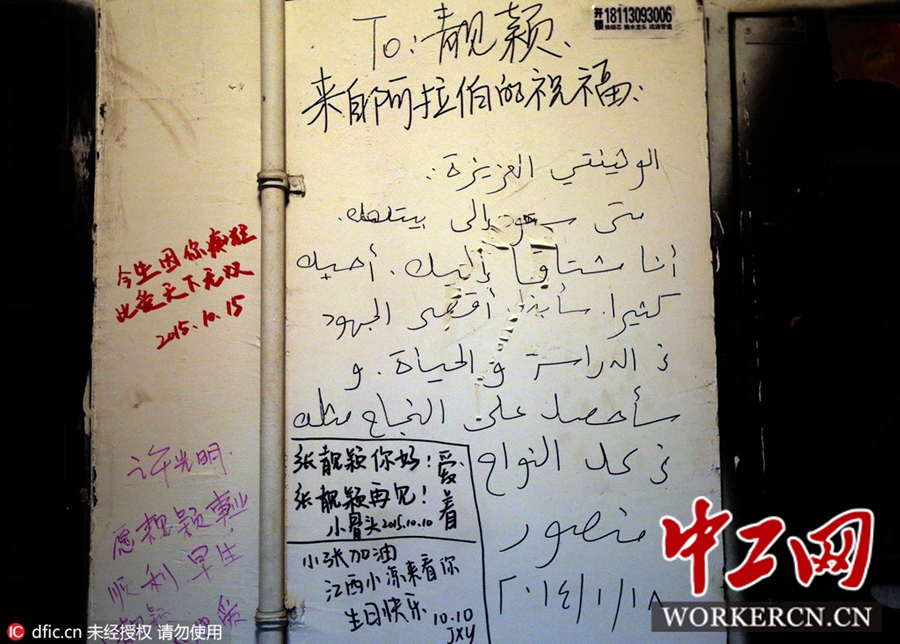 开锁 18113093006
换锁芯 换水龙头 疏通管道
To:靓颖、
来自阿拉伯的祝福:
العزيزة:
متى
أنا مشتاقا إليك. أحبك
كثيرا. سأبذل أقصى الجهود
في الدراسة والحياة. و
سأحصل على النجاح مثلك
في كل النواح
منصور
٢٠١٤/١/١٨
今生因你痴狂
此爱天下无双
2015.10.15
许光明.
愿靓颖事业
顺利 早生
张靓颖你好!
张靓颖再见!
爱着
小骨头2015.10.10
小张加油
江西小凉来看你
生日快乐 10.10
JXY
中工网
WORKERCN.CN
IC dfic.cn 未经授权 请勿使用